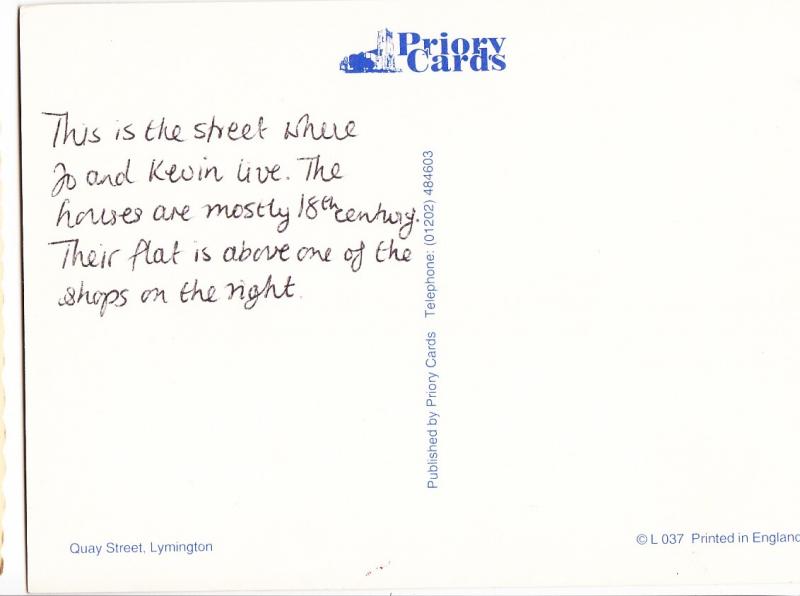 Priory
Cards
This is the street where
Jo and Kevin live. The
houses are mostly 18th century.
Their flat is above one of the
shops on the right.
Published by Priory Cards Telephone: (01202) 484603
Quay Street, Lymington
© L 037 Printed in England